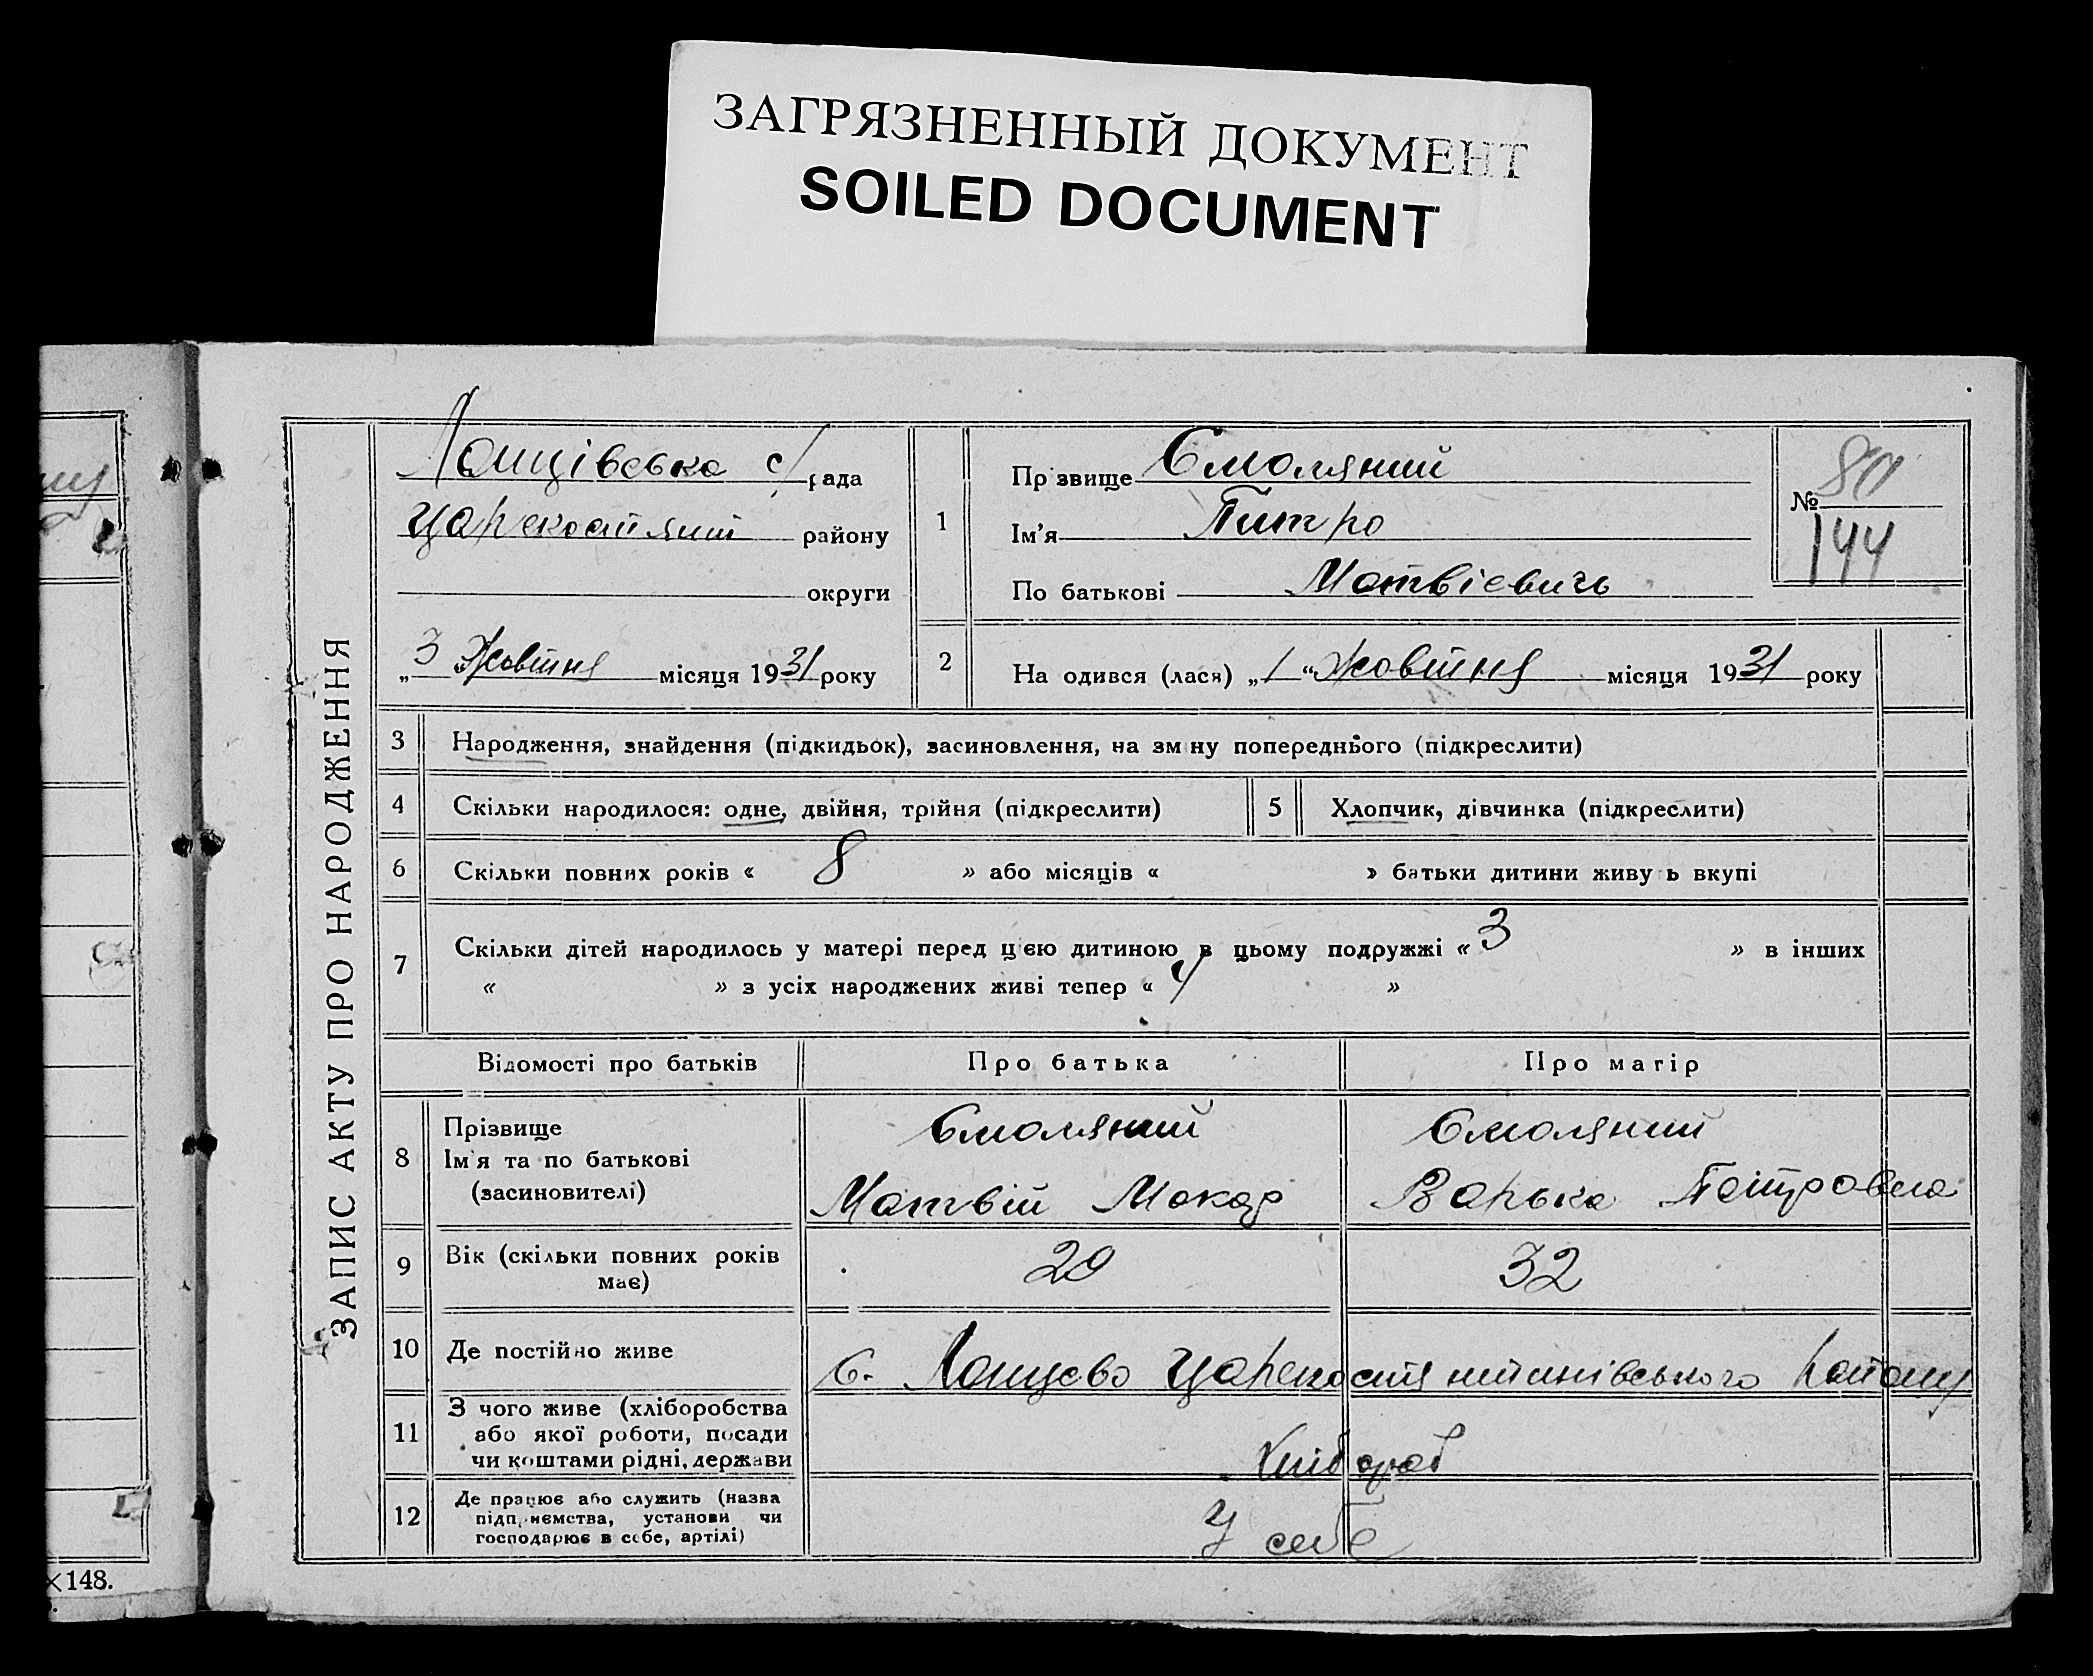 ЗАГРЯЗНЕННЫЙ ДОКУМЕНТ
SOILED DOCUMENT
ЗАПИС АКТУ ПРО НАРОДЖЕННЯ
Лонцівська с/рада
району
округи
„3“ Жовтня місяця 1931 року
1
Прізвище Смоляний
Ім’я Питро
По батькові Матвієвичь
№ 80
144
2 На одився (лася) „1“ Жовтня місяця 1931 року
3 Народження, знайдення (підкидьок), засиновлення, на зміну попереднього (підкреслити)
4 Скільки народилося: одне, двійня, трійня (підкреслити) 5 Хлопчик, дівчинка (підкреслити)
6 Скільки повних років « 8 » або місяців « » батьки дитини живу ь вкупі
7 Скільки дітей народилось у матері перед цією дитиною в цьому подружжі « 3 » в інших
« » з усіх народжених живі тепер « 4 »
Відомості про батьків Про батька Про матір
8 Прізвище Смоляний Смоляний
Ім’я та по батькові
(засиновителі) Матвій Макар Варька Петровна
9 Вік (скільки повних років
має) 29 32
10 Де постійно живе с. Лонцево
11 З чого живе (хліборобства
або якої роботи, посади
чи коштами рідні, держави Хлібороб
12 Де працює або служить (назва
підприємства, установи чи
господарює в себе, артілі) У себе
×148.